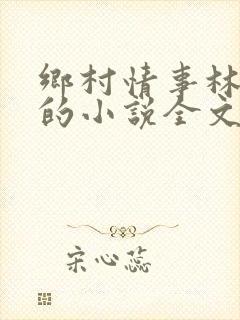 鄉村情事林
的小説全文
宋心蕊